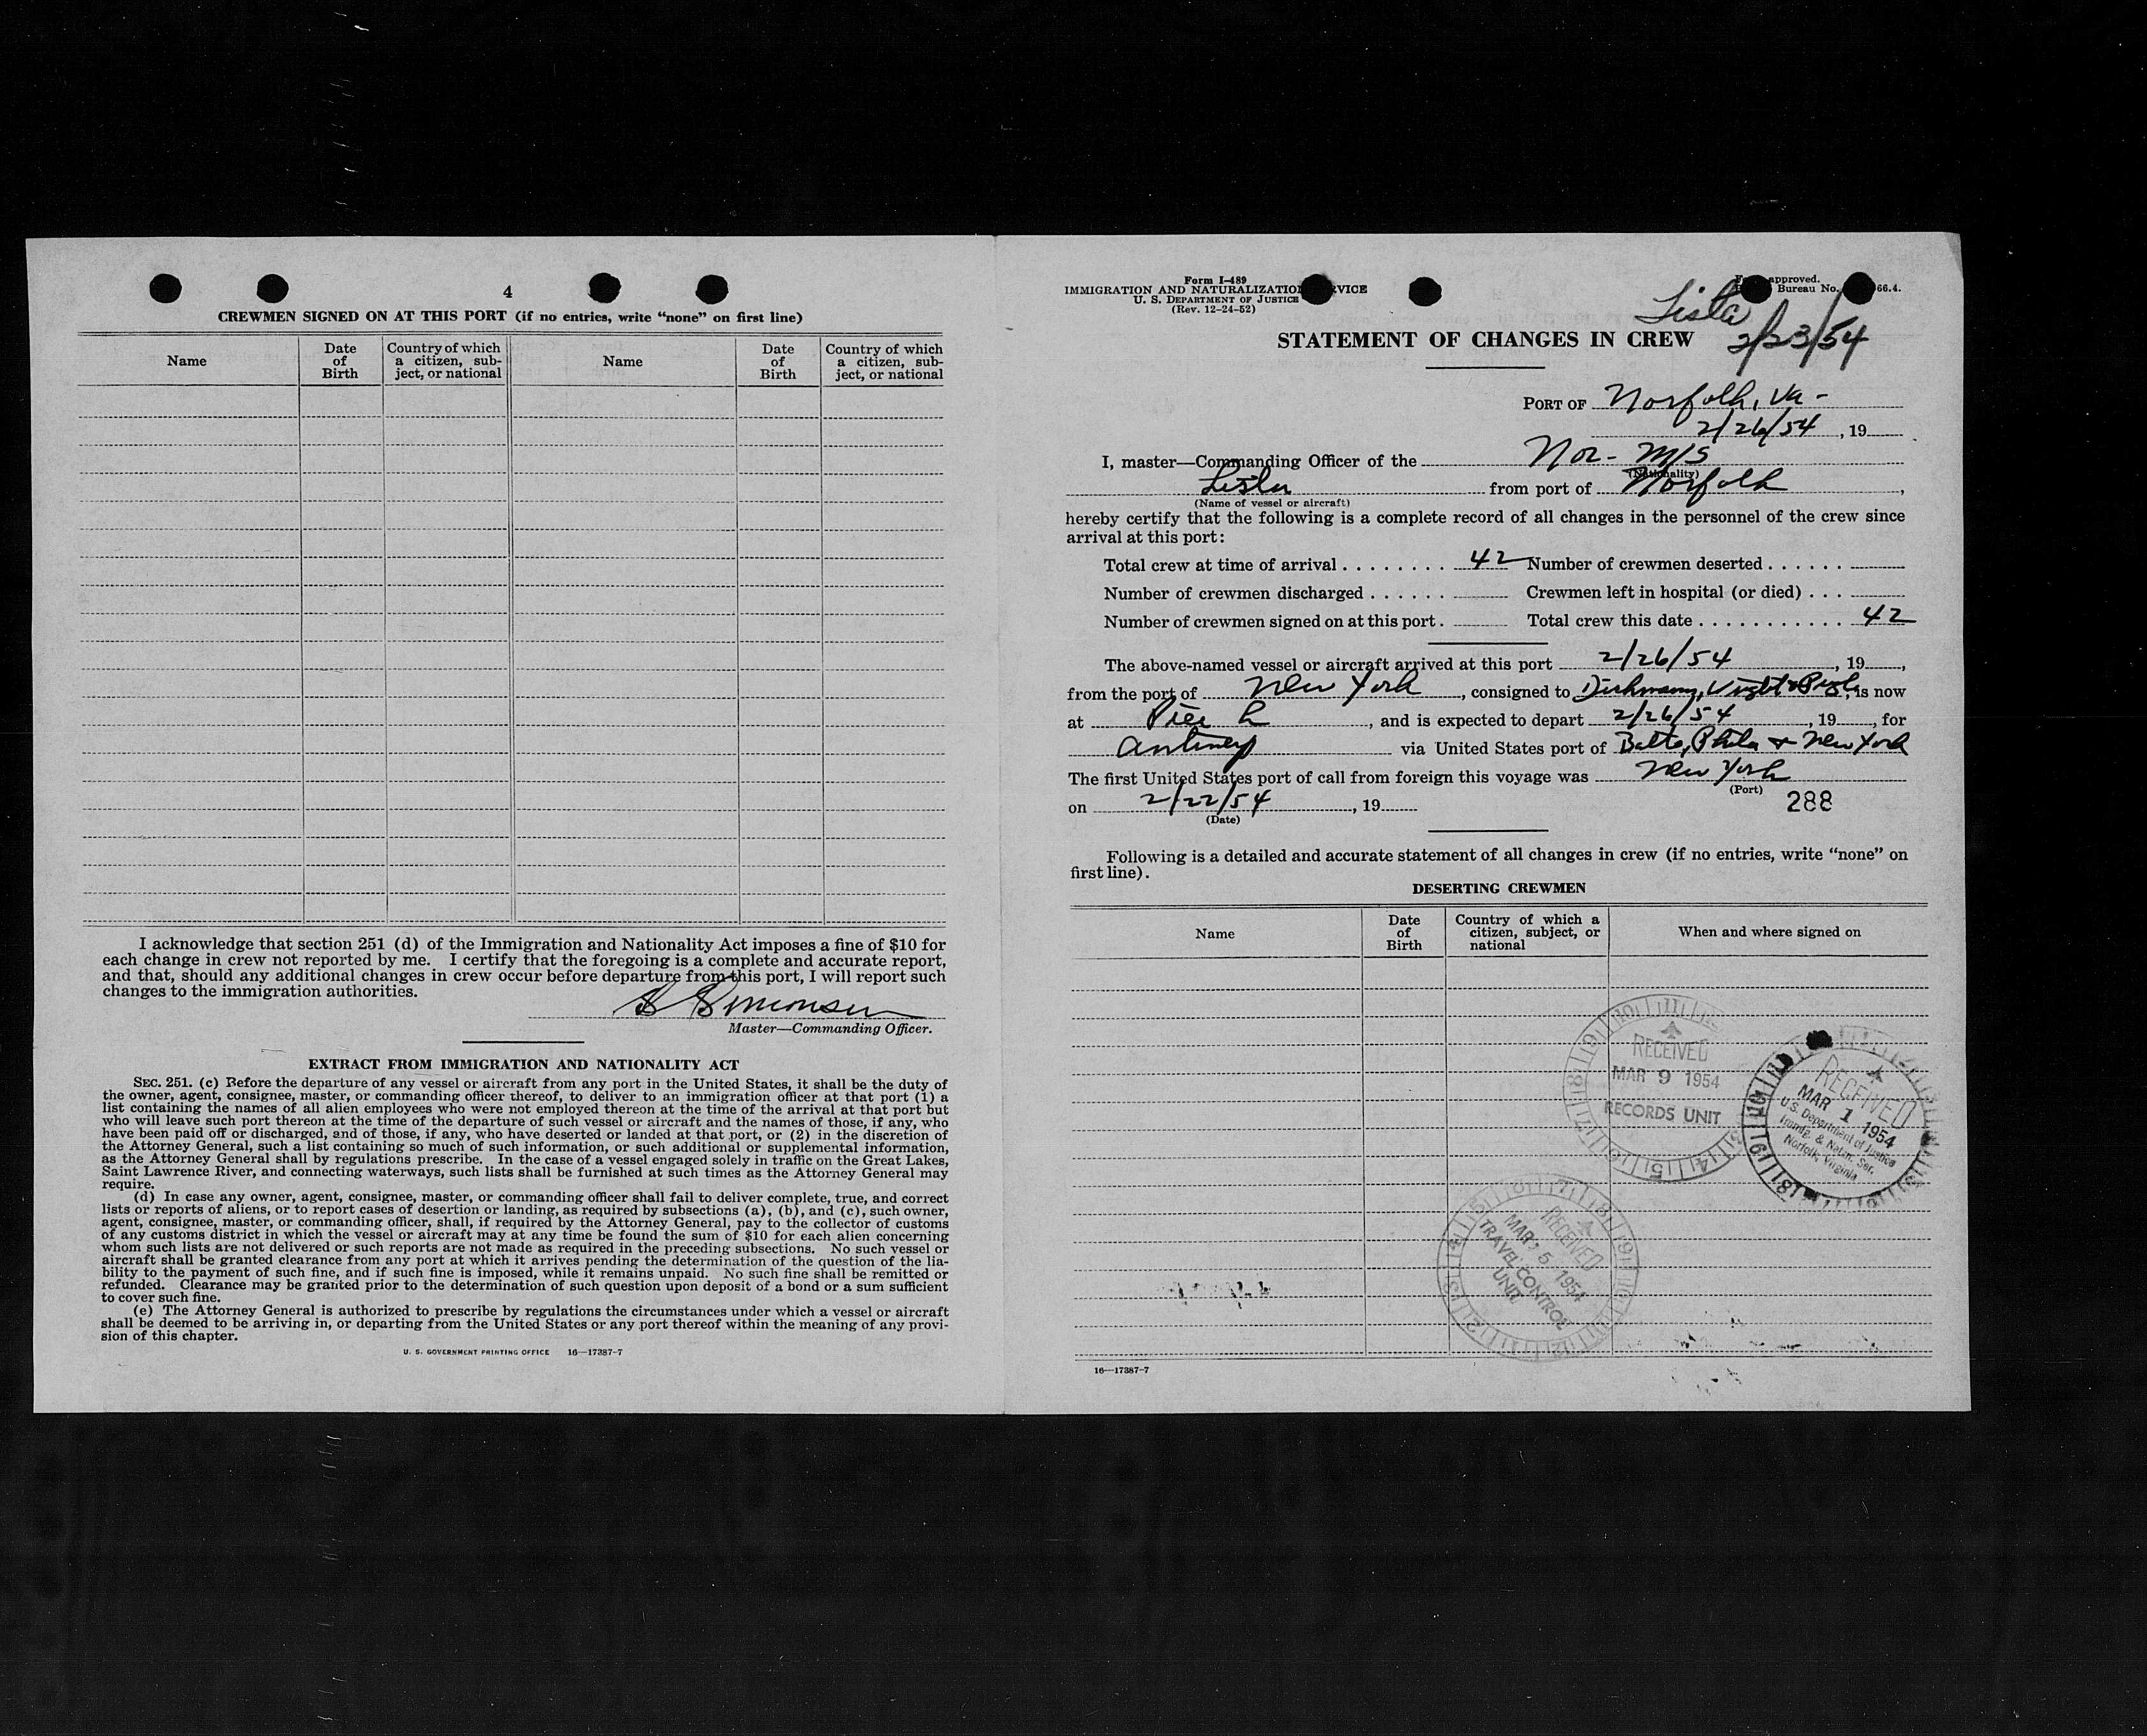 4
CREWMEN SIGNED ON AT THIS PORT (if no entries, write "none" on first line)
Name
Date of Birth
Country of which a citizen, subject, or national
Name
Date of Birth
Country of which a citizen, subject, or national
I acknowledge that section 251 (d) of the Immigration and Nationality Act imposes a fine of $10 for
each change in crew not reported by me. I certify that the foregoing is a complete and accurate report,
and that, should any additional changes in crew occur before departure from this port, I will report such
changes to the immigration authorities.
Simonsen
Master—Commanding Officer.
EXTRACT FROM IMMIGRATION AND NATIONALITY ACT
SEC. 251. (c) Before the departure of any vessel or aircraft from any port in the United States, it shall be the duty of
the owner, agent, consignee, master, or commanding officer thereof, to deliver to an immigration officer at that port (1) a
list containing the names of all alien employees who were not employed thereon at the time of the arrival at that port but
who will leave such port thereon at the time of the departure of such vessel or aircraft and the names of those, if any, who
have been paid off or discharged, and of those, if any, who have deserted or landed at that port, or (2) in the discretion of
the Attorney General, such a list containing so much of such information, or such additional or supplemental information,
as the Attorney General shall by regulations prescribe. In the case of a vessel engaged solely in traffic on the Great Lakes,
Saint Lawrence River, and connecting waterways, such lists shall be furnished at such times as the Attorney General may
require.
(d) In case any owner, agent, consignee, master, or commanding officer shall fail to deliver complete, true, and correct
lists or reports of aliens, or to report cases of desertion or landing, as required by subsections (a), (b), and (c), such owner,
agent, consignee, master, or commanding officer, shall, if required by the Attorney General, pay to the collector of customs
of any customs district in which the vessel or aircraft may at any time be found the sum of $10 for each alien concerning
whom such lists are not delivered or such reports are not made as required in the preceding subsections. No such vessel or
aircraft shall be granted clearance from any port at which it arrives pending the determination of the question of the lia-
bility to the payment of such fine, and if such fine is imposed, while it remains unpaid. No such fine shall be remitted or
refunded. Clearance may be granted prior to the determination of such question upon deposit of a bond or a sum sufficient
to cover such fine.
(e) The Attorney General is authorized to prescribe by regulations the circumstances under which a vessel or aircraft
shall be deemed to be arriving in, or departing from the United States or any port thereof within the meaning of any provi-
sion of this chapter.
U. S. GOVERNMENT PRINTING OFFICE 16—17387-7
Form I-489
IMMIGRATION AND NATURALIZATION SERVICE
U. S. DEPARTMENT OF JUSTICE
(Rev. 12-24-52)
approved.
Bureau No. 66.4.
Lista
2/23/54
STATEMENT OF CHANGES IN CREW
PORT OF Norfolk, Va -
2/26/54, 19
I, master—Commanding Officer of the Nor - M/S
(Nationality)
Lista from port of Norfolk,
(Name of vessel or aircraft)
hereby certify that the following is a complete record of all changes in the personnel of the crew since
arrival at this port:
Total crew at time of arrival 42 Number of crewmen deserted
Number of crewmen discharged Crewmen left in hospital (or died)
Number of crewmen signed on at this port. Total crew this date 42
The above-named vessel or aircraft arrived at this port 2/26/54, 19,
from the port of New York, consigned to Dichmann, Wright & Pugh, is now
at Pier L, and is expected to depart 2/26/54, 19, for
Antwerp via United States port of Balto, Phila & New York
The first United States port of call from foreign this voyage was New York
(Port)
on 2/22/54, 19
(Date)
288
Following is a detailed and accurate statement of all changes in crew (if no entries, write "none" on
first line).
DESERTING CREWMEN
Name
Date of Birth
Country of which a citizen, subject, or national
When and where signed on
RECEIVED
MAR 9 1954
RECORDS UNIT
RECEIVED
MAR 1 1954
U.S. Department of Justice
Immig. & Natzn. Ser.
Norfolk, Virginia
RECEIVED
MAR 5 1954
TRAVEL CONTROL
UNIT
16—17387-7